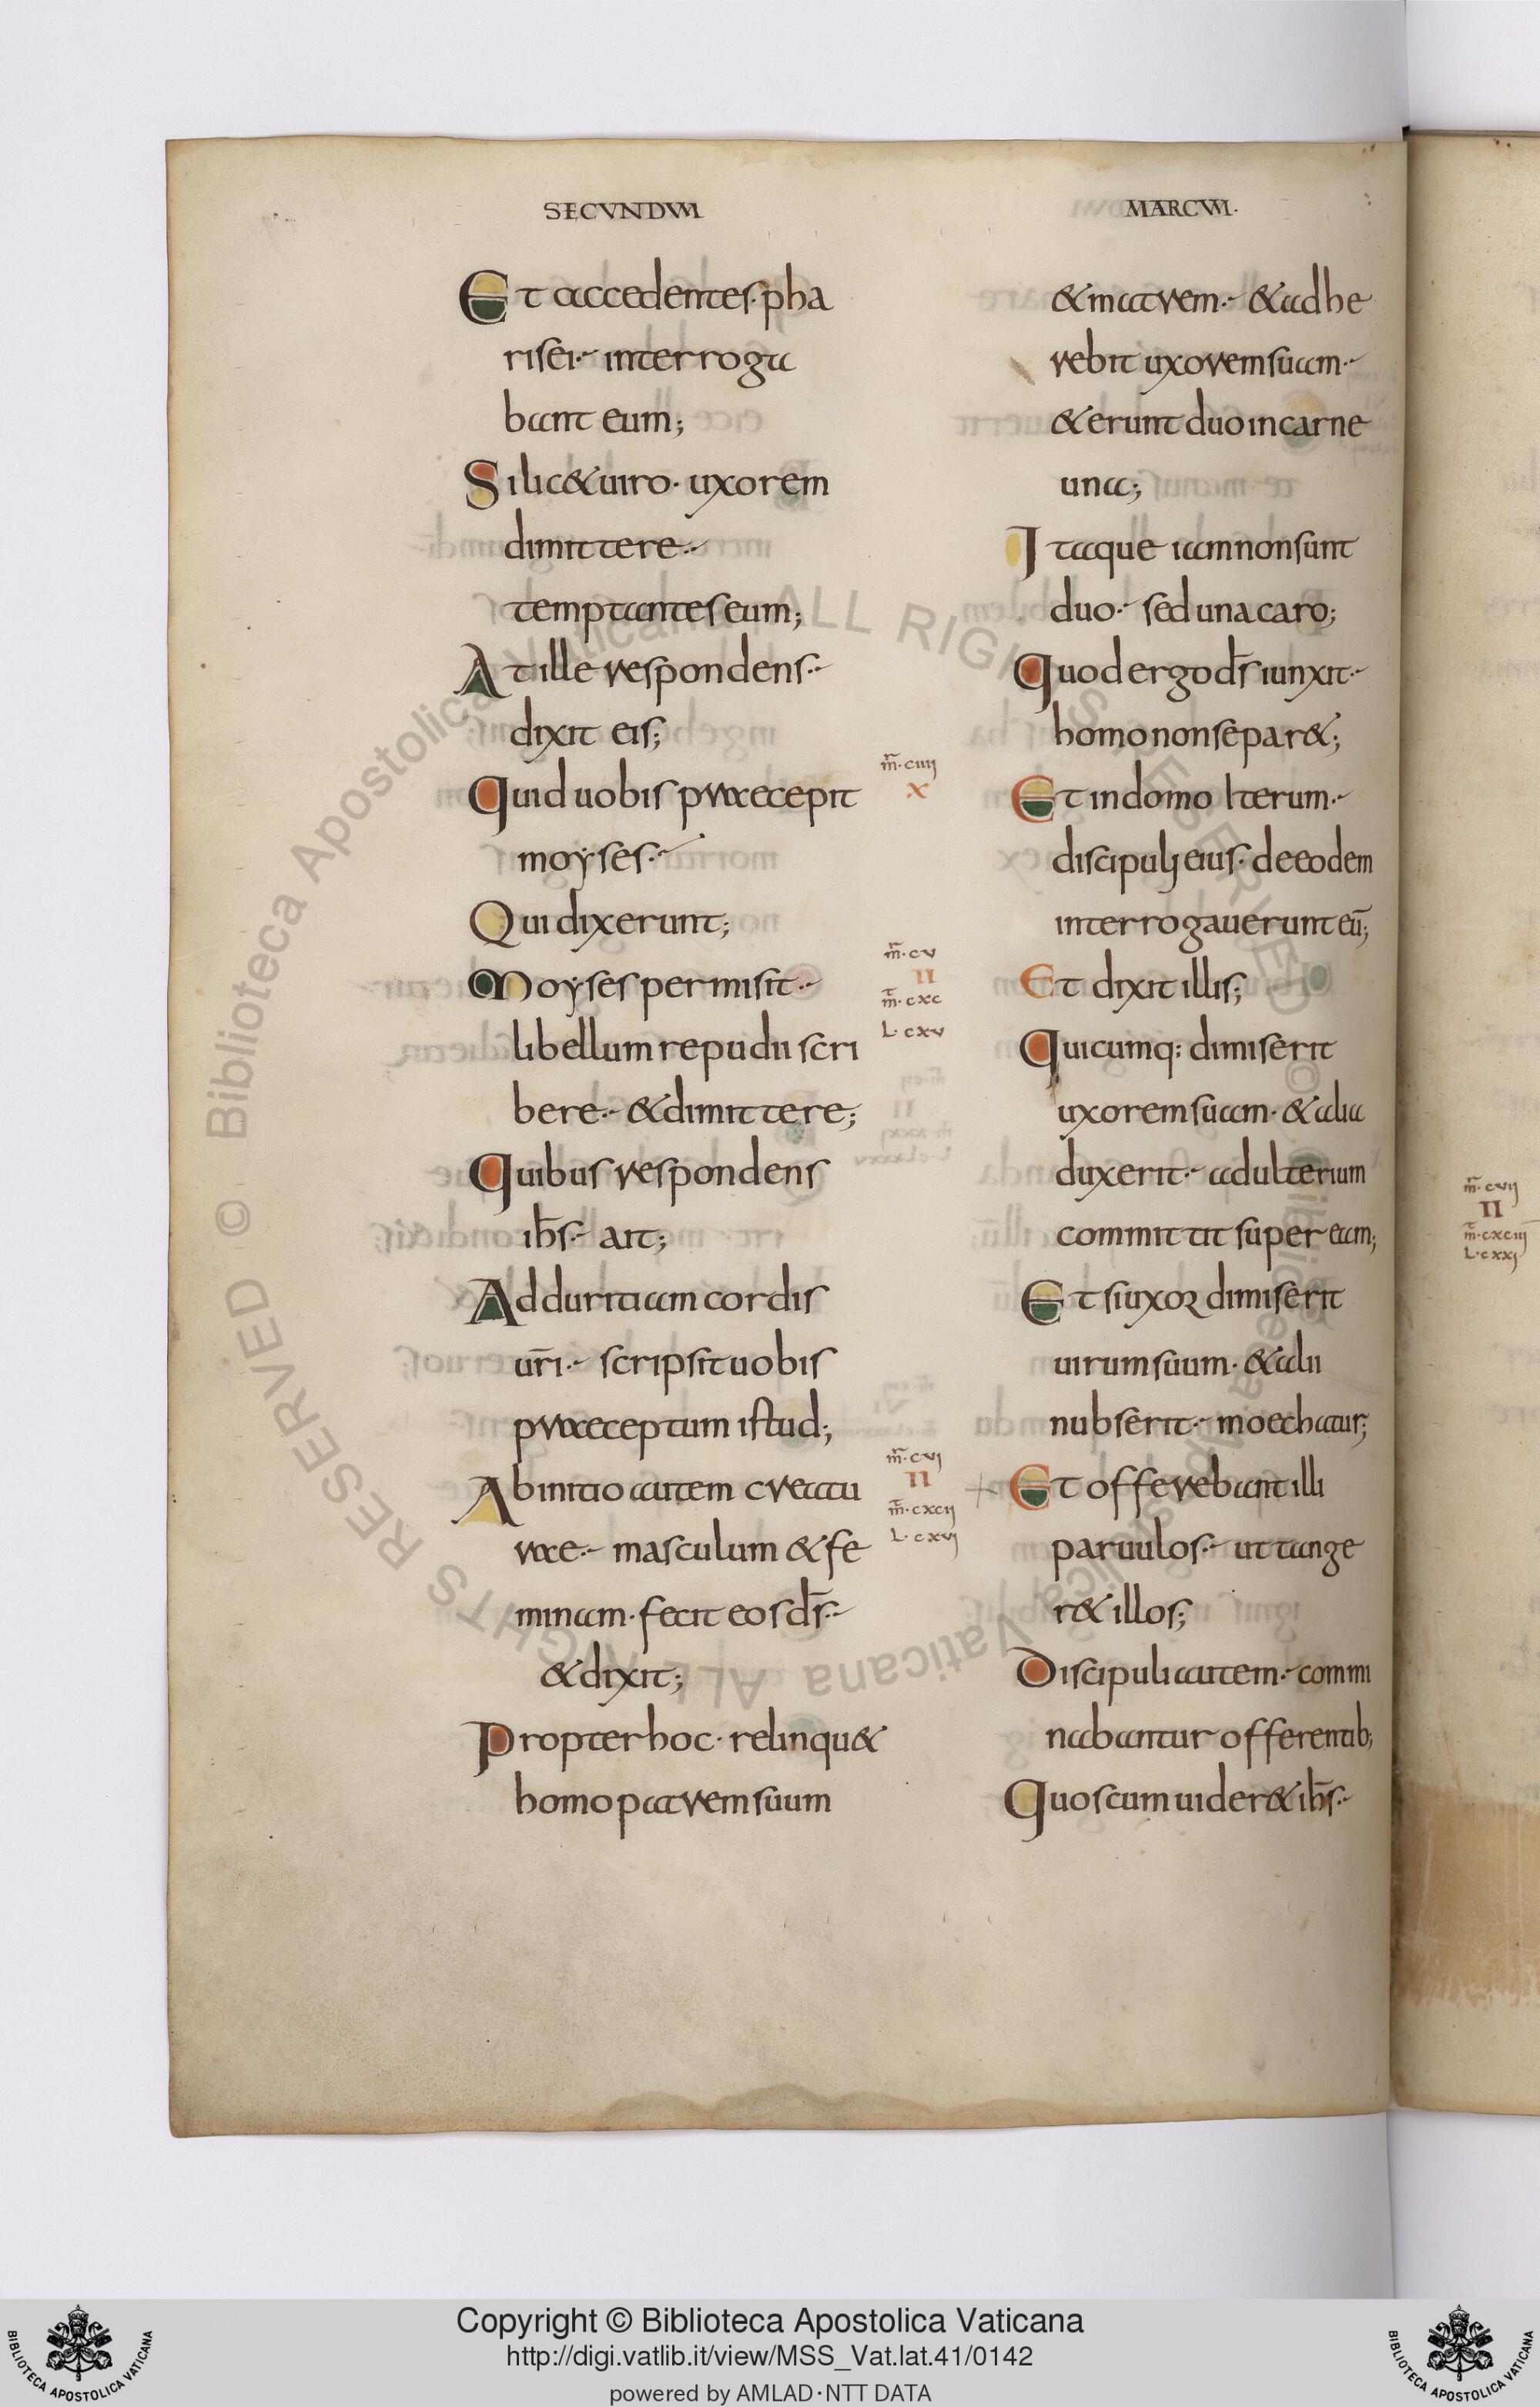 SECVNDVM
MARCVM·
Et accedentes·pha
risei·- interroga
bant eum;
Si lic&uiro· uxorem
dimittere·-
temptantes eum;
At ille respondens·-
dixit eis;
Quid uobis praecepit
moyses·-
Qui dixerunt;
Moyses permisit·-
libellum repudii scri
bere·- &dimittere;
Quibus respondens
ih̄s·- ait;
Ad duritiam cordis
ur̄i·- scripsit uobis
praeceptum istud;
Ab initio autem creatu
rae·- masculum &fe
minam·fecit eos d̄s·-
&dixit;
Propter hoc· relinqu&
homo patrem suum
m̄r·ciiij
x
m̄r·cv
II
m̄t·cxc
L·cxv
m̄r·cvj
II
m̄t·cxcij
L·cxvj
&matrem·- &adhe
rebit uxorem suam·-
&erunt duo in carne
una;
Itaque iam non sunt
duo·- sed una caro;
Quod ergo d̄s iunxit·-
homo non separ&;
Et in domo Iterum·-
discipulj eius· de eodem
interrogauerunt eū;
Et dixit illis;
Quicumq; dimiserit
uxorem suam· &alia
duxerit·- adulterium
committit super eam;
Et si uxor dimiserit
uirum suum· &alii
nubserit·- moechatur;
Et offerebant illi
paruulos·- ut tange
r& illos;
Discipuli autem·- commi
nabantur offerentib;
Quos cum uider& ih̄s·-
m̄r·cvij
II
m̄t·cxciij
L·cxxj
© Biblioteca Apostolica Vaticana ALL RIGHTS RESERVED
© Biblioteca Apostolica Vaticana ALL RIGHTS RESERVED
Copyright © Biblioteca Apostolica Vaticana
http://digi.vatlib.it/view/MSS_Vat.lat.41/0142
powered by AMLAD·NTT DATA
BIBLIOTECA APOSTOLICA VATICANA
BIBLIOTECA APOSTOLICA VATICANA